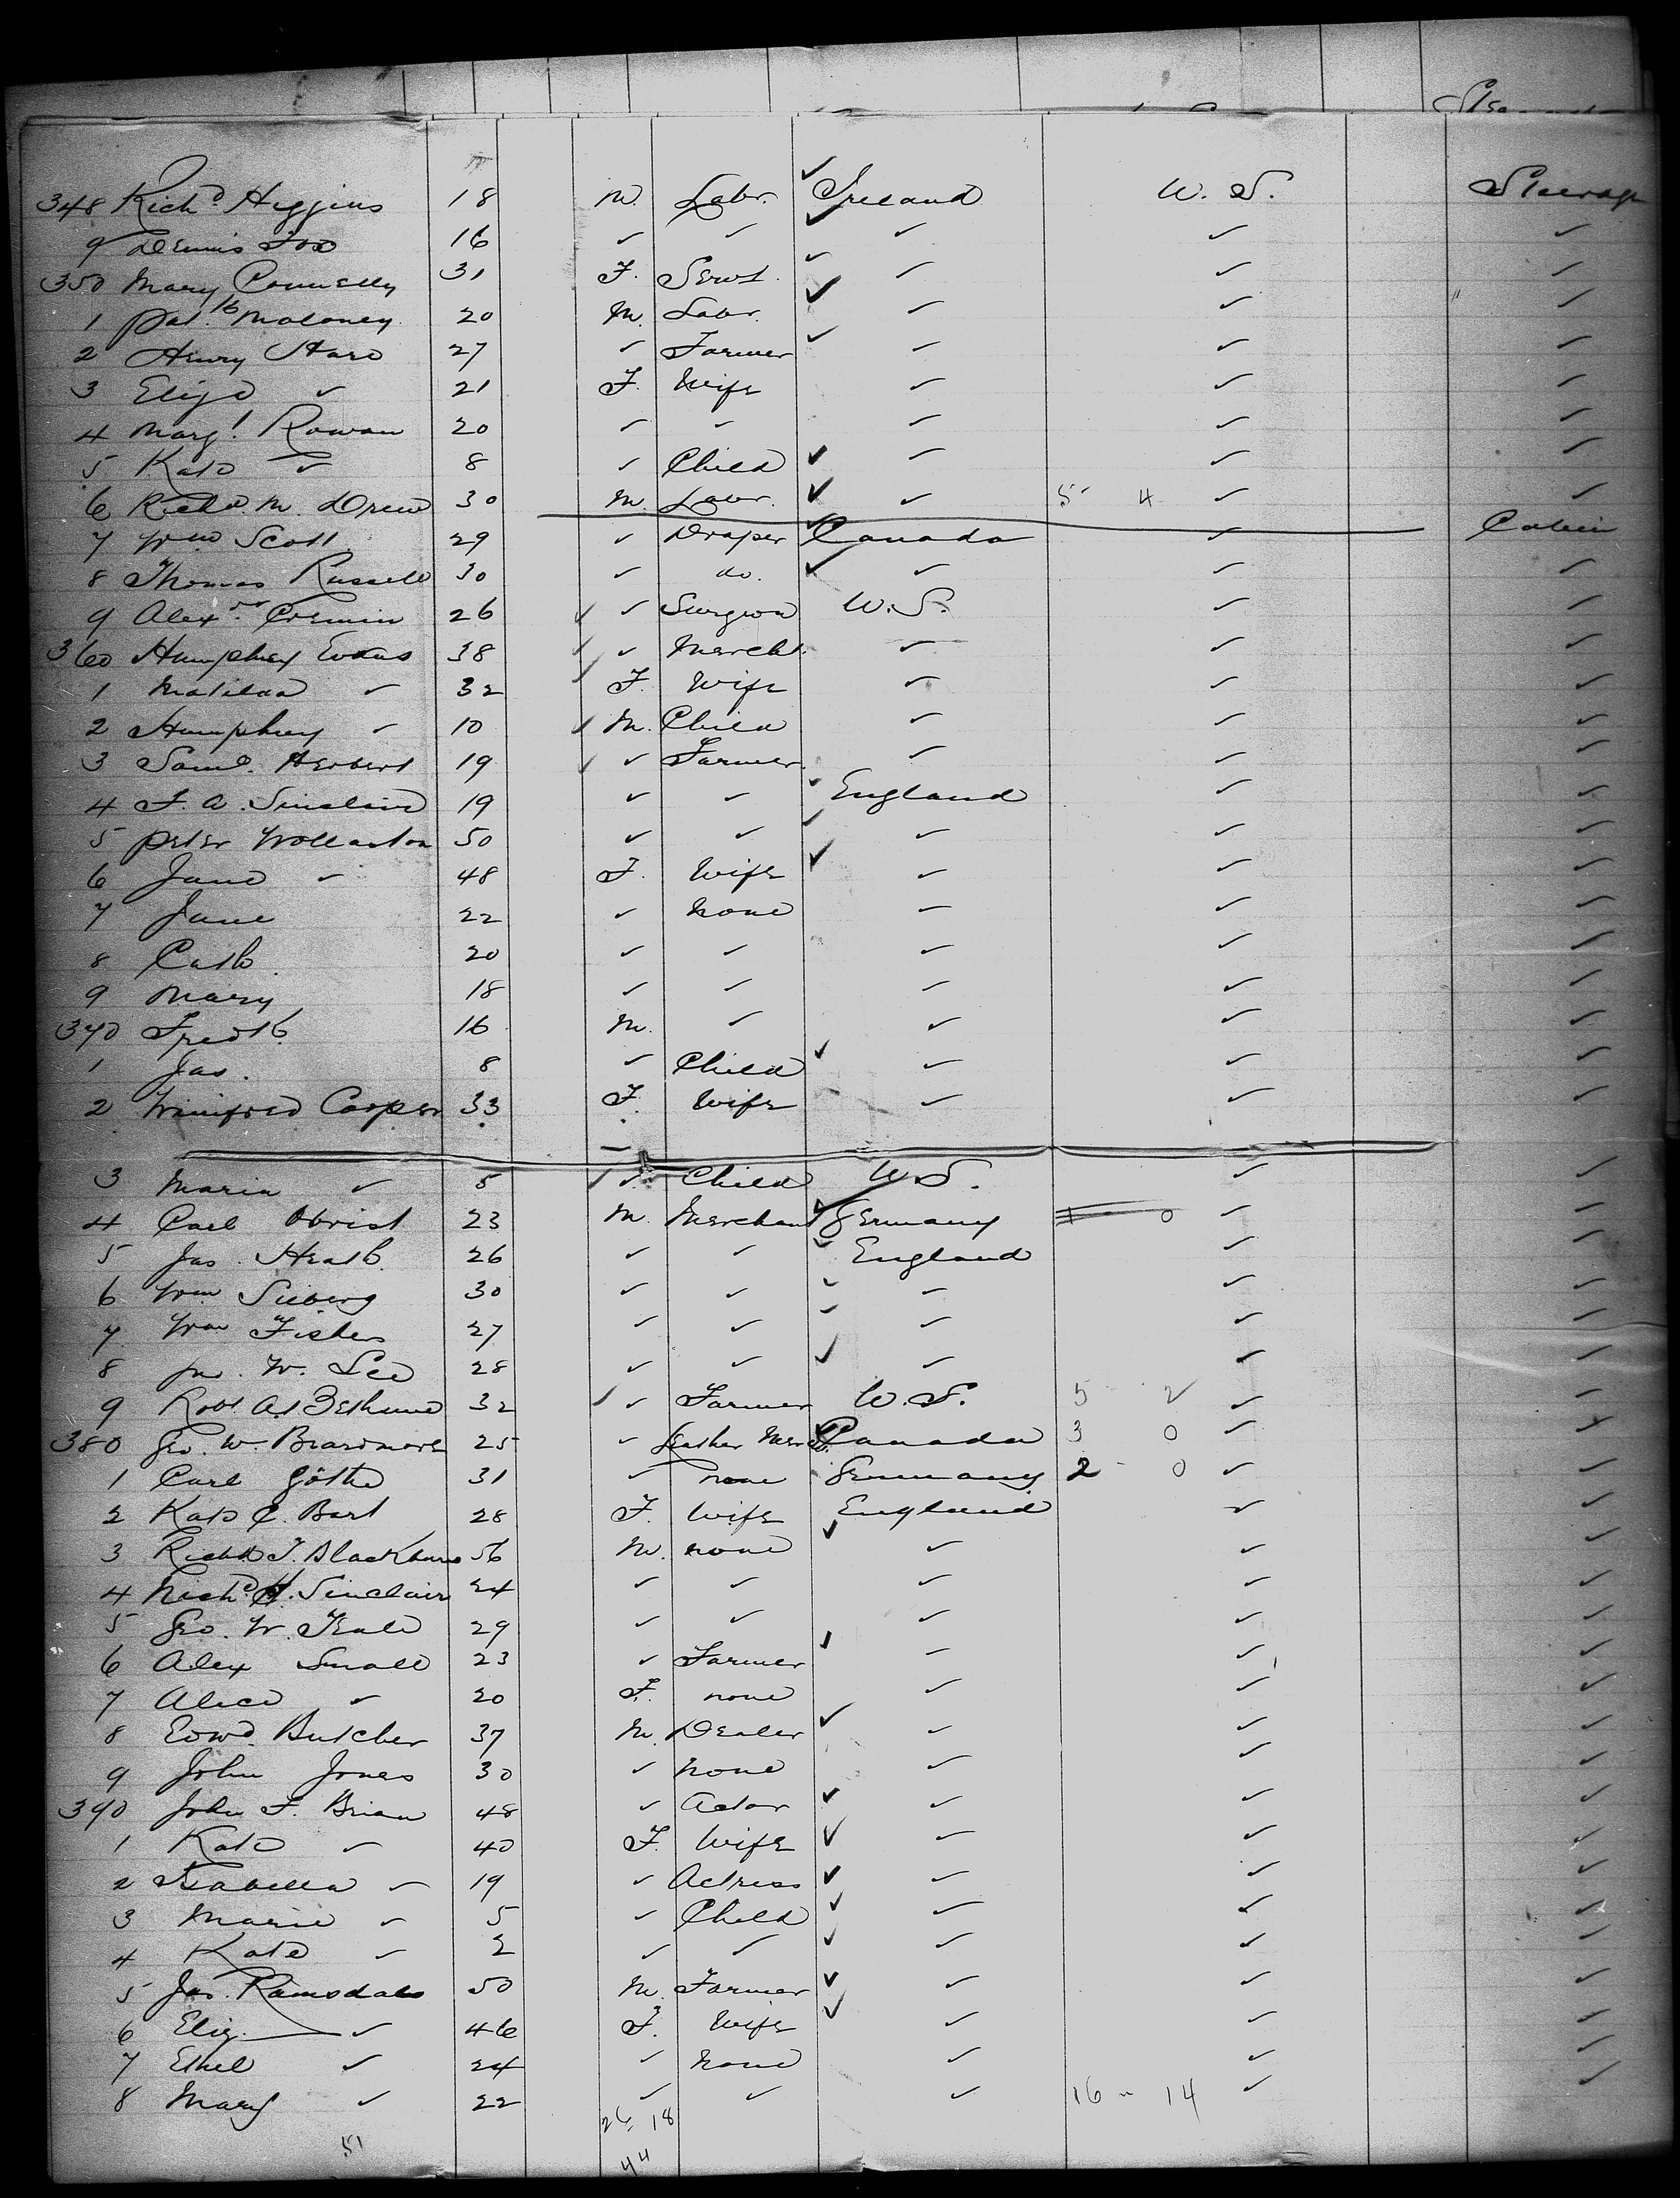 Steerage
348 Rich.d Higgins 18 M. Labr. ✓ Ireland U. S. Steerage
9 Dennis Fox 16 ✓ ✓ ✓ ✓ ✓ ✓
350 Mary Connelly 31 F. Servt. ✓ ✓ ✓ ✓
1 Pat. Moloney 20 M. Labr. ✓ ✓ ✓ ✓
2 Henry Hare 27 ✓ Farmer ✓ ✓ ✓ ✓
3 Eliza ✓ 21 F. Wife ✓ ✓ ✓
4 Marg.t Rowan 20 ✓ ✓ ✓ ✓ ✓
5 Kate ✓ 8 ✓ Child ✓ ✓ ✓ ✓
6 Richd. M. Drew 30 M. Labr. ✓ ✓ 5 4 ✓ ✓
7 Wm Scott 29 ✓ Draper ✓ Canada ✓ Cabin
8 Thomas Russell 30 ✓ do. ✓ ✓ ✓ ✓
9 Alex.dr Cremin 26 ✓ ✓ Surgeon U. S. ✓ ✓
360 Humphrey Evans 38 ✓ ✓ Mercht. ✓ ✓ ✓
1 Matilda ✓ 32 ✓ F. Wife ✓ ✓ ✓
2 Humphrey ✓ 10 ✓ M. Child ✓ ✓ ✓
3 Saml. Herbert 19 ✓ ✓ Farmer ✓ ✓ ✓
4 F. A. Sinclair 19 ✓ ✓ ✓ England ✓ ✓
5 Peter Wollaston 50 ✓ ✓ ✓ ✓ ✓ ✓
6 Jane ✓ 48 F. Wife ✓ ✓ ✓ ✓
7 Jane 22 ✓ None ✓ ✓ ✓
8 Cath 20 ✓ ✓ ✓ ✓ ✓
9 Mary 18 ✓ ✓ ✓ ✓ ✓
370 Fredk. 16 M. ✓ ✓ ✓ ✓
1 Jas. 8 ✓ Child ✓ ✓ ✓ ✓
2 Winifred Cooper 33 F. Wife ✓ ✓ ✓
3 Maria ✓ 5 ✓ ✓ Child U. S. ✓ ✓
4 Carl Obrist 23 M. Merchant ✓ Germany 1 0 ✓ ✓
5 Jas. Heath 26 ✓ ✓ ✓ England ✓ ✓
6 Wm Sieberg 30 ✓ ✓ ✓ ✓ ✓ ✓
7 Wm Fisher 27 ✓ ✓ ✓ ✓ ✓ ✓
8 Jno. W. Lee 28 ✓ ✓ ✓ ✓ ✓ ✓
9 Robt A. Bethune 32 ✓ ✓ Farmer U. S. 5 2 ✓ ✓
380 Geo. W. Beardmore 25 ✓ Leather Mercht. Canada 3 0 ✓ ✓
1 Carl Göthe 31 ✓ none Germany 2 0 ✓ ✓
2 Kate C. Bart 28 F. Wife England ✓ ✓
3 Richd T. Blackburn 56 M. none ✓ ✓ ✓ ✓
4 H. Sinclair 24 ✓ ✓ ✓ ✓ ✓
5 Geo. W. Teale 29 ✓ ✓ ✓ ✓ ✓
6 Alex Small 23 ✓ Farmer ✓ ✓ ✓ ✓
7 Alice ✓ 20 F. none ✓ ✓ ✓
8 Edwd. Butcher 37 M. Dealer ✓ ✓ ✓ ✓
9 John Jones 30 ✓ none ✓ ✓ ✓
390 John F. Brian 48 ✓ Actor ✓ ✓ ✓ ✓
1 Kate ✓ 40 F. Wife ✓ ✓ ✓ ✓
2 Isabella ✓ 19 ✓ Actress ✓ ✓ ✓ ✓
3 Marie ✓ 5 ✓ Child ✓ ✓ ✓ ✓
4 Kate ✓ 2 ✓ ✓ ✓ ✓ ✓ ✓
5 Jas. Ramsdale 50 M. Farmer ✓ ✓ ✓ ✓
6 Eliz. ✓ 46 F. Wife ✓ ✓ ✓ ✓
7 Ethel ✓ 24 ✓ none ✓ ✓ ✓
8 Mary ✓ 22 ✓ ✓ ✓ 16 14 ✓ ✓
26 18
51 44